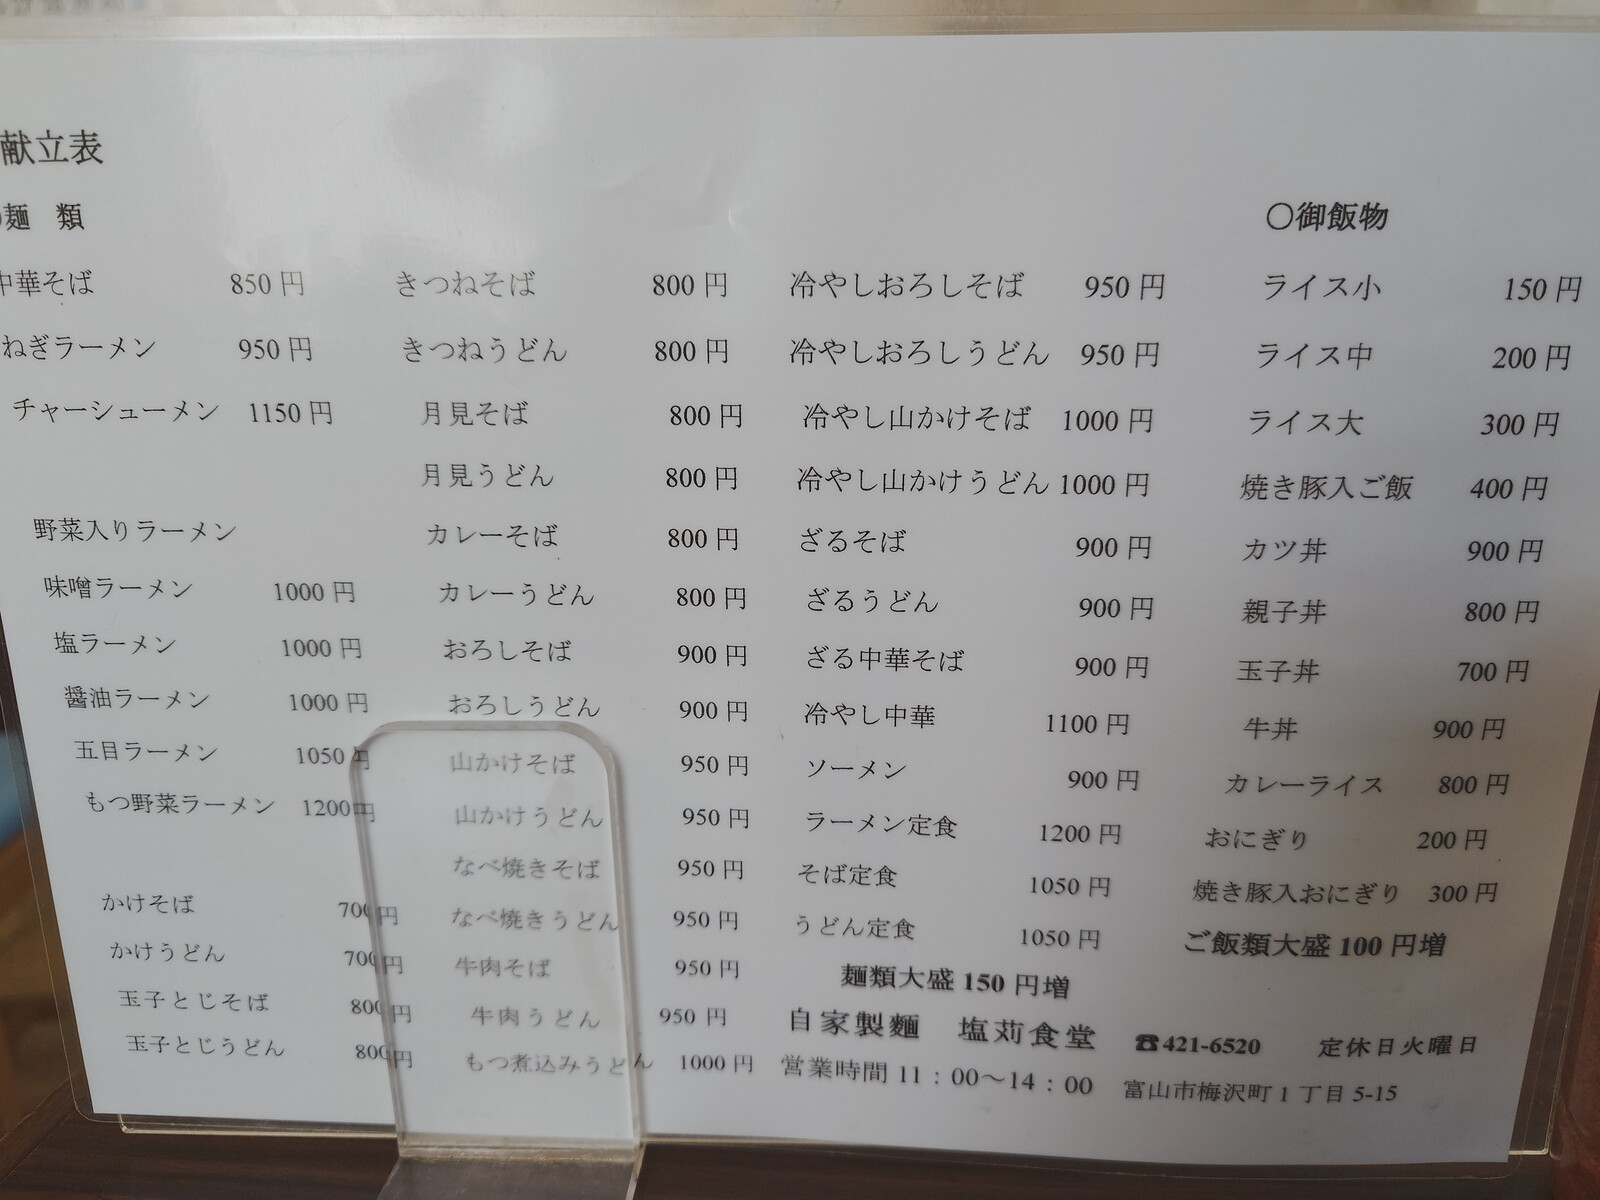 献立表
麺 類
中華そば 850円
ねぎラーメン 950円
チャーシューメン 1150円
野菜入りラーメン
味噌ラーメン 1000円
塩ラーメン 1000円
醤油ラーメン 1000円
五目ラーメン 1050円
もつ野菜ラーメン 1200円
かけそば 700円
かけうどん 700円
玉子とじそば 800円
玉子とじうどん 800円
きつねそば 800円
きつねうどん 800円
月見そば 800円
月見うどん 800円
カレーそば 800円
カレーうどん 800円
おろしそば 900円
おろしうどん 900円
山かけそば 950円
山かけうどん 950円
なべ焼きそば 950円
なべ焼きうどん 950円
牛肉そば 950円
牛肉うどん 950円
もつ煮込みうどん 1000円
冷やしおろしそば 950円
冷やしおろしうどん 950円
冷やし山かけそば 1000円
冷やし山かけうどん 1000円
ざるそば 900円
ざるうどん 900円
ざる中華そば 900円
冷やし中華 1100円
ソーメン 900円
ラーメン定食 1200円
そば定食 1050円
うどん定食 1050円
麺類大盛150円増
〇御飯物
ライス小 150円
ライス中 200円
ライス大 300円
焼き豚入ご飯 400円
カツ丼 900円
親子丼 800円
玉子丼 700円
牛丼 900円
カレーライス 800円
おにぎり 200円
焼き豚入おにぎり 300円
ご飯類大盛100円増
自家製麺 塩苅食堂 ☎421-6520 定休日火曜日
営業時間11：00～14：00 富山市梅沢町1丁目5-15